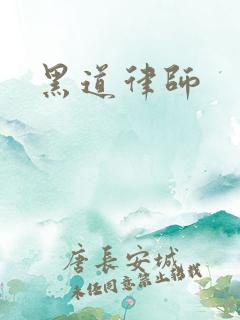 黑道律師
唐長安城
未经同意禁止转载